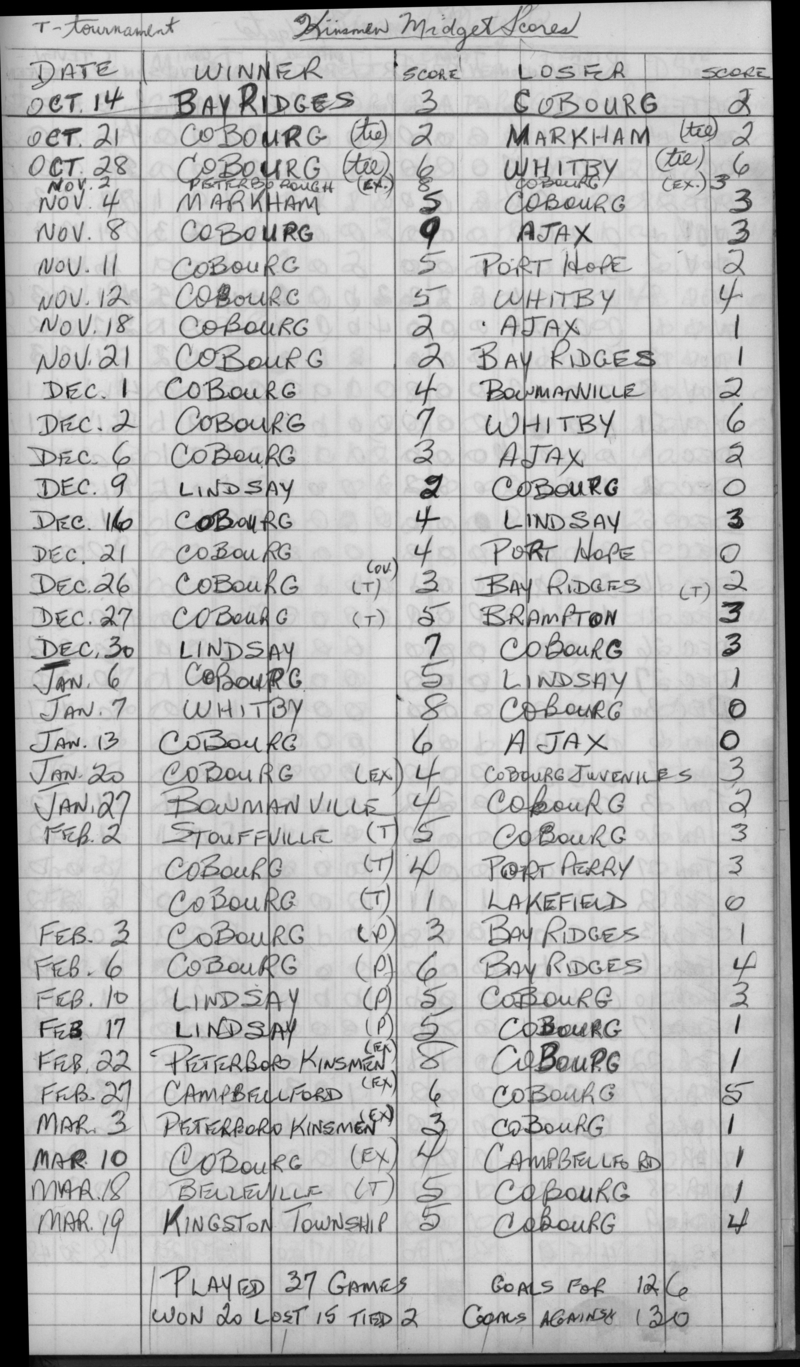 T-tournament Kinsmen Midget Scores
DATE WINNER SCORE LOSER SCORE
OCT. 14 BAY RIDGES 3 COBOURG 2
OCT. 21 COBOURG (tie) 2 MARKHAM (tie) 2
OCT. 28 COBOURG (tie) 6 WHITBY (tie) 6
NOV. 2 PETERBOROUGH (EX.) 8 COBOURG (EX.) 3
NOV. 4 MARKHAM 5 COBOURG 3
NOV. 8 COBOURG 9 AJAX 3
NOV. 11 COBOURG 5 PORT HOPE 2
NOV. 12 COBOURG 5 WHITBY 4
NOV. 18 COBOURG 2 AJAX 1
NOV. 21 COBOURG 2 BAY RIDGES 1
DEC. 1 COBOURG 4 BOWMANVILLE 2
DEC. 2 COBOURG 7 WHITBY 6
DEC. 6 COBOURG 3 AJAX 2
DEC. 9 LINDSAY 2 COBOURG 0
DEC. 16 COBOURG 4 LINDSAY 3
DEC. 21 COBOURG 4 PORT HOPE 0
DEC. 26 COBOURG (OV.) (T) 3 BAY RIDGES (T) 2
DEC. 27 COBOURG (T) 5 BRAMPTON 3
DEC. 30 LINDSAY 7 COBOURG 3
JAN. 6 COBOURG 5 LINDSAY 1
JAN. 7 WHITBY 8 COBOURG 0
JAN. 13 COBOURG 6 AJAX 0
JAN. 20 COBOURG (EX) 4 COBOURG JUVENILES 3
JAN. 27 BOWMANVILLE 4 COBOURG 2
FEB. 2 STOUFFVILLE (T) 5 COBOURG 3
COBOURG (T) 4 PORT PERRY 3
COBOURG (T) 1 LAKEFIELD 0
FEB. 3 COBOURG (P) 3 BAY RIDGES 1
FEB. 6 COBOURG (P) 6 BAY RIDGES 4
FEB. 10 LINDSAY (P) 5 COBOURG 3
FEB 17 LINDSAY (P) 5 COBOURG 1
FEB. 22 PETERBORO KINSMEN (EX) 8 COBOURG 1
FEB. 27 CAMPBELLFORD (EX) 6 COBOURG 5
MAR. 3 PETERBORO KINSMEN (EX) 3 COBOURG 1
MAR. 10 COBOURG (EX) 4 CAMPBELLFORD 1
MAR. 18 BELLEVILLE (T) 5 COBOURG 1
MAR. 19 KINGSTON TOWNSHIP 5 COBOURG 4
PLAYED 37 GAMES GOALS FOR 126
WON 20 LOST 15 TIED 2 GOALS AGAINST 130